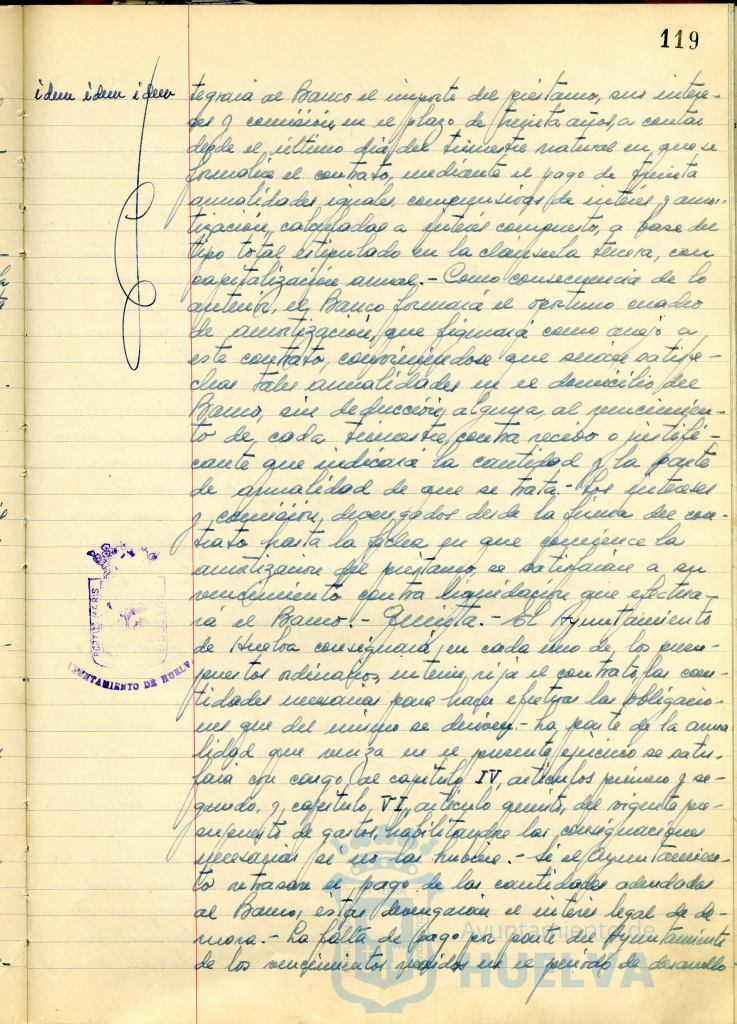 119
idem idem idem
tegrará al Banco el importe del préstamo, sus intere-
ses y comisión, en el plazo de treinta años, a contar
desde el último día del trimestre natural en que se
formalice el contrato, mediante el pago de treinta
anualidades iguales, comprensivas de interés y amor-
tización, calculadas a interés compuesto, a base del
tipo total estipulado en la cláusula tercera, con
capitalización anual.- Como consecuencia de lo
anterior, el Banco formará el oportuno cuadro
de amortización, que figurará como anejo a
este contrato, conviniéndose que serán satisfe-
chas tales anualidades en el domicilio del
Banco, sin deducción alguna, al vencimien-
to de cada trimestre, contra recibo o justifi-
cante que indicará la cantidad y la parte
de anualidad de que se trata.- Los intereses
y comisión, devengados desde la firma del con-
trato hasta la fecha en que comience la
amortización del préstamo, se satisfarán a su
vencimiento contra liquidación que efectua-
rá el Banco.- Quinta.- El Ayuntamiento
de Huelva consignará, en cada uno de los presu-
puestos ordinarios, interin rija el contrato, las can-
tidades necesarias para hacer efectivas las obligacio-
nes que del mismo se deriven.- La parte de la anua-
lidad que venza en el presente ejercicio se satis-
fará con cargo al capítulo IV, artículos primero y se-
gundo, y capítulo VI, artículo quinto, del vigente pre-
supuesto de gastos, habilitandose las consignaciones
necesarias si no las hubiere.- Si el Ayuntamien-
to retrasare el pago de las cantidades adeudadas
al Banco, éstas devengarán el interés legal de de-
mora.- La falta de pago por parte del Ayuntamiento
de los vencimientos en el período de desarrollo
PORTUS MARIS
AYUNTAMIENTO DE HUELVA
Ayuntamiento de
HUELVA